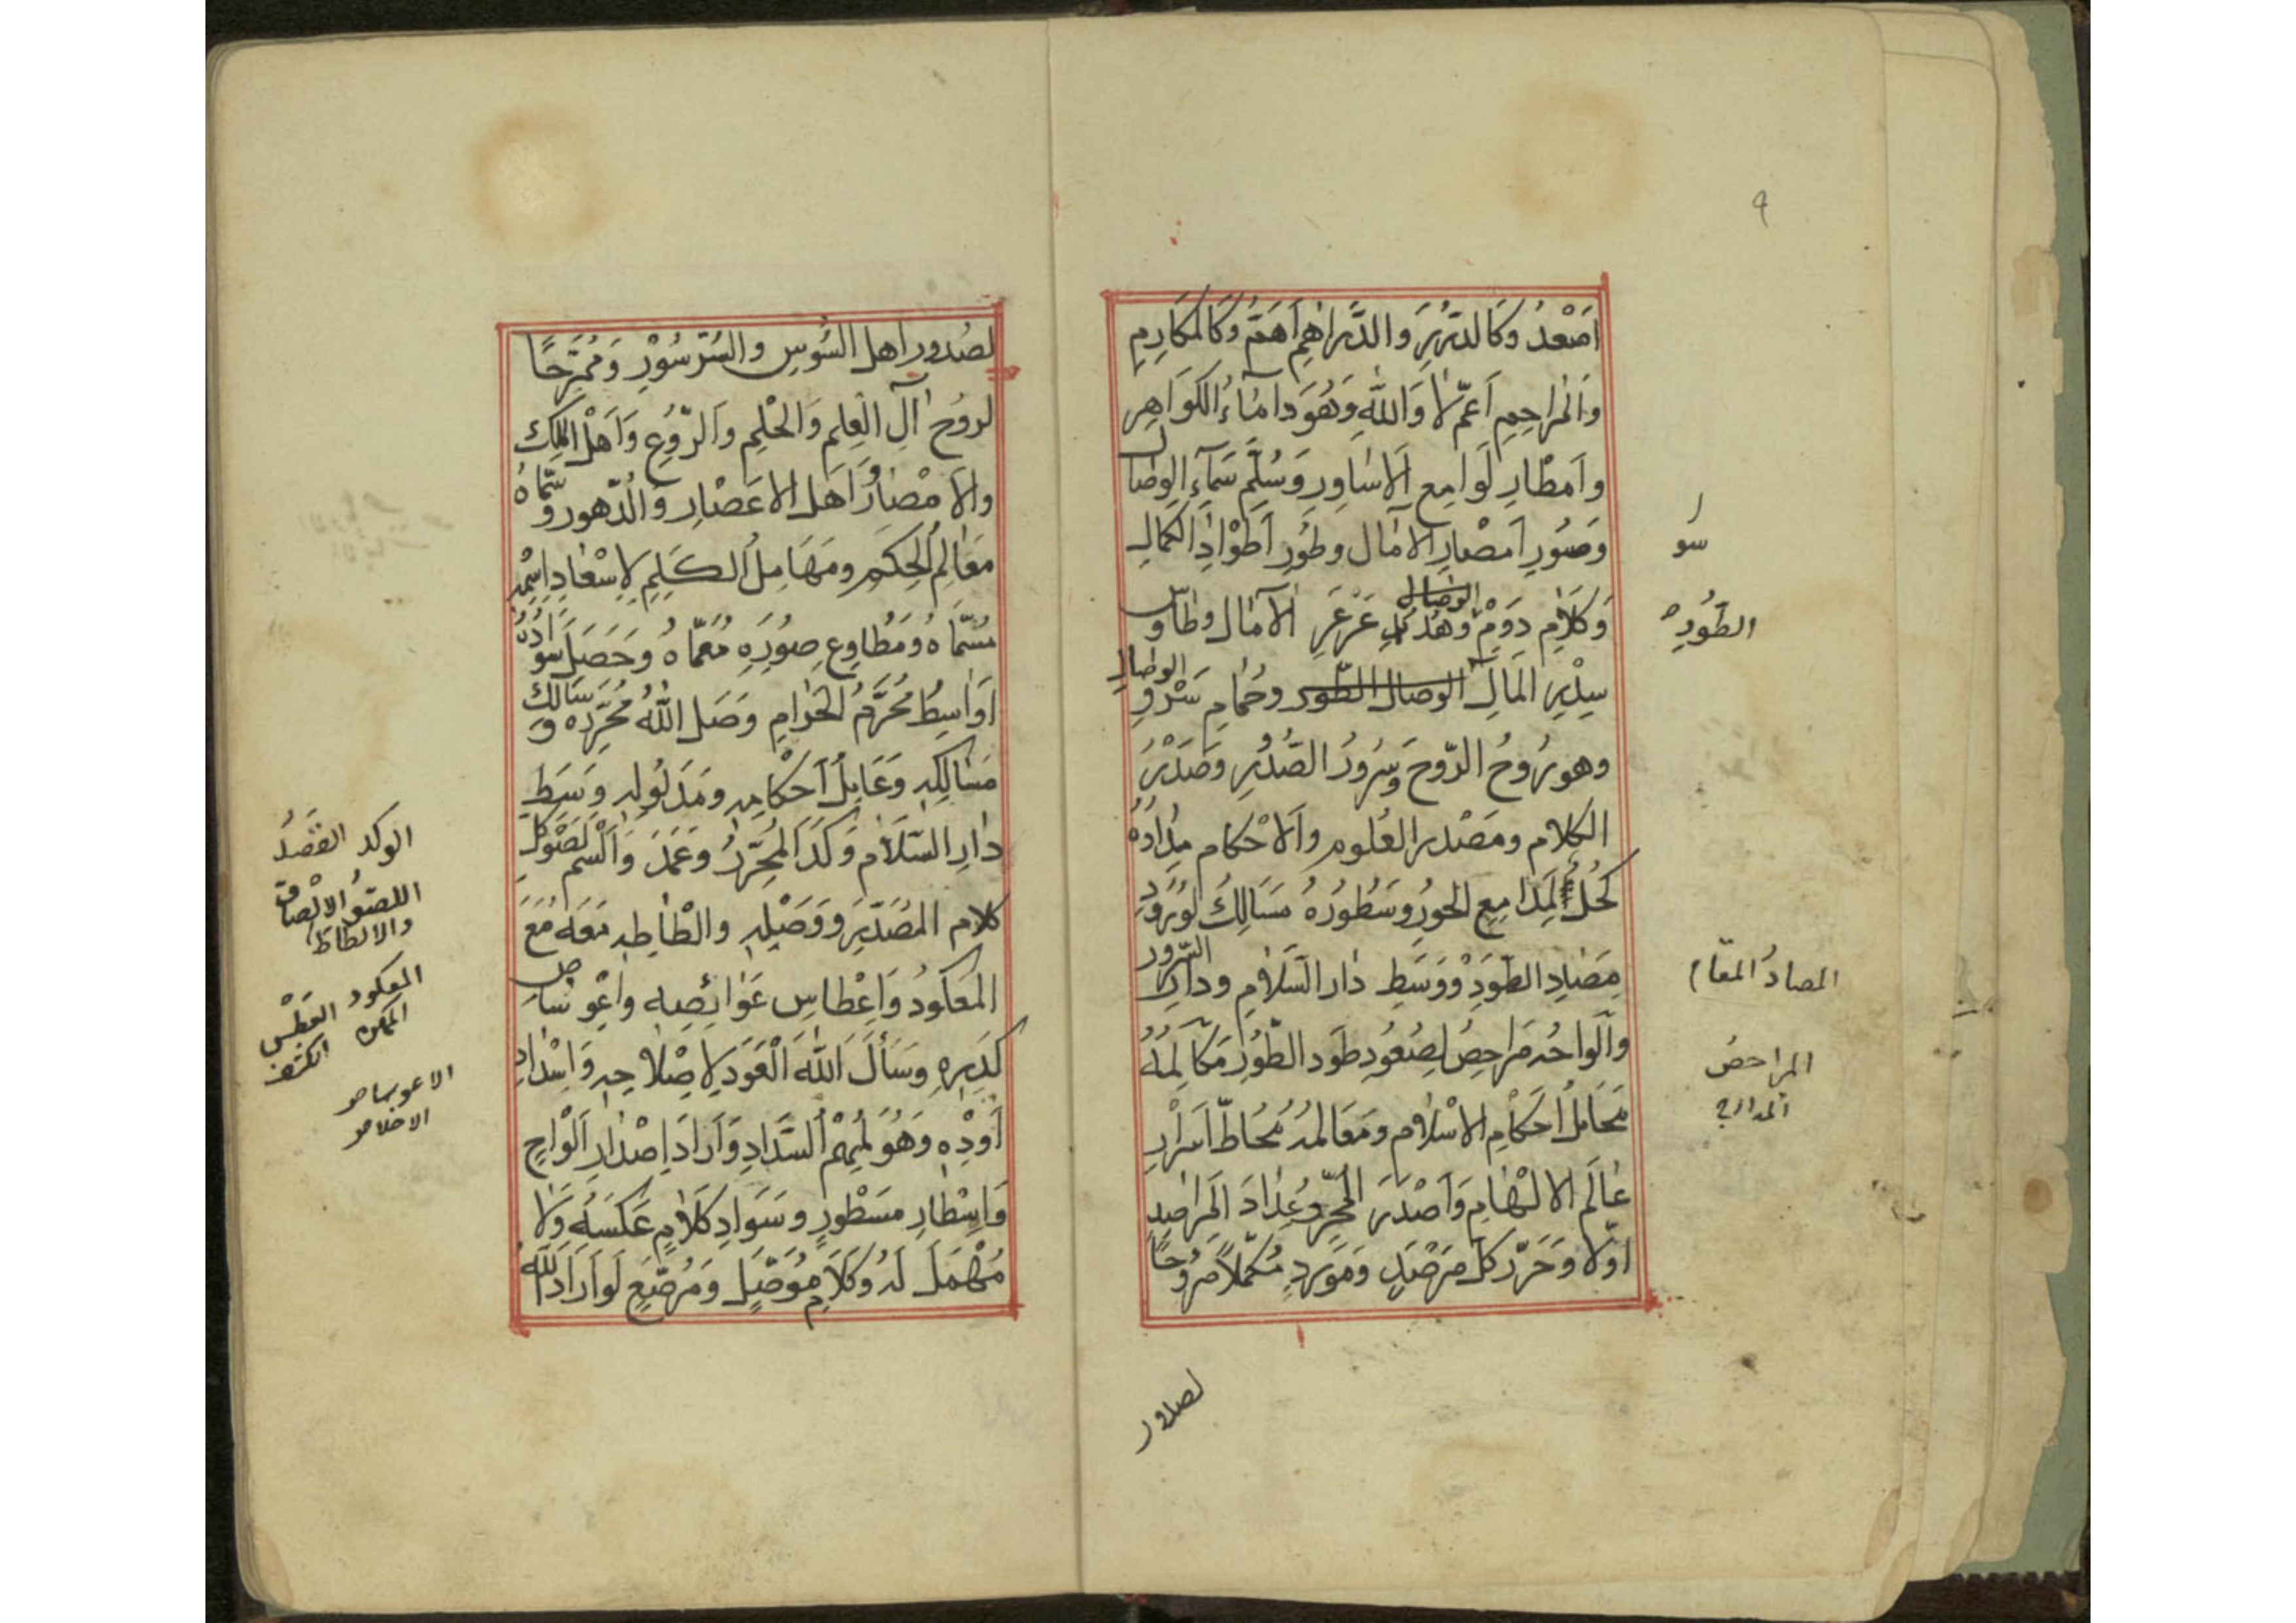 ٩
اَصْعَدُ وَكَالدُّرَرِ وَالدَّرَاهِمِ اَهَمُّ وَكَالمَكَارِمِ
وَالمَرَاحِمِ اَعَمُّ لَا وَاللهِ وَهُوَ دَامَاءُ الكَوَاهِرِ
وَاَمْطَارِ لَوَامِعِ الاَسَاوِرِ وَسُلَّمِ سَمَاءِ الوِصَالِ
وَصُوَرِ اَمْصَارِ الآمَالِ وَطُوَرِ اَطْوَادِ الكَمَالِ
وَكَلَامِ دَوْمِ وَهَدْلِ عَرْعَرِ الآمَالِ وَطَاوُسِ
سِدْرِ المَالِ الوصال الطور وَحَمَامِ سَرْوِ الوِصَالِ
وَهُوَ رَوْحُ الرُّوحِ وَسُرُورُ الصُّدُرِ وَصَدْرُ
الكَلَامِ وَمَصْدَرُ العُلُومِ وَالاَحْكَامِ مِدَادُهُ
كُحْلٌ لِمَدَامِعِ الحُورِ وَسُطُورُهُ مَسَالِكُ لِوُرُودِ
مَصَادِ الطَّوْدِ وَوَسَطِ دَارِ السَّلَامِ وَدَارِ السُّرُورِ
وَاَلْوَاحُهُ مَرَاحِضُ لِصُعُودِ طَوْدِ الطُّورِ مَكَالِمُهُ
مَحَامِلُ اَحْكَامِ الاِسْلَامِ وَمَعَالِمُهُ مَحَاطُّ اَسْرَارِ
عَالَمِ الاِلْهَامِ وَاَصْدَرَ المُحَرِّرُ عِدَادَ المَرَاصِدِ
اَوَّلًا وَحَرَّرَ كُلَّ مَرْصَدٍ وَمَوْرِدٍ مُكَمَّلًا مُرَوِّحًا
سو
الطَّوْدِ
المصادُ المقام
المراحض
المدارج
لصدور
لِصُدُورِ اَهْلِ السُّوسِ وَالسُّرْسُورِ وَمُمَرِّحًا
لِرُوحِ آلِ العِلْمِ وَالحِلْمِ وَالرُّوعِ وَاَهْلِ المِلْكِ
وَالاَمْصَارِ وَاَهْلِ الاَعْصَارِ وَالدُّهُورِ وَسَمَّاهُ
مَعَالِمَ الحِكَمِ وَمَهَامِلَ الكَلِمِ لِاِسْعَادِ اِسْمِهِ
مُسَمَّاهُ وَمُطَاوِعِ صُوَرِهِ مُعَمَّاهُ وَحَصَلَ سَوَادُهُ
اَوَاسِطَ مُحَرَّمِ الحَرَامِ وَصَلَ اللهُ مُحَرِّرَهُ وَسَالِكَ
مَسَالِكِهِ وَعَامِلَ اَحْكَامِهِ وَمَدْلُولِهِ وَسَطَ
دَارِ السَّلَامِ وَكَدَ المُحَرِّرُ وَعَمَدَ وَاَلْسَمَ لِصَوْكِ
كَلَامِ المُصَدَّرِ وَوَصْلِهِ وَالْطَاطِهِ مَعَهُ مَعَ
المَعْكُودِ وَاِعْطَاسِ عَوَائِصِهِ وَاعْوِسَاسِ
كَدَرِهِ وَسَأَلَ اللهَ العَوْدَ لِاِصْلَاحِهِ وَاِسْدَادِ
اَوَدِهِ وَهُوَ مُلْهِمُ السَّدَادِ وَاَرَادَ اِصْدَارَ اَلْوَاحِ
وَاِسْطَارِ مَسْطُورٍ وَسَوَادِ كَلَامٍ عَكْسُهُ وَلَا
مُهْمَلَ لَهُ وَكَلَامٍ مُوَصَّلٍ وَمُرَصَّعٍ لَوْ اَرَادَ اللهُ
الوكد القَصْدُ
اللصو الالصاق
والالطاط
المعكود
العَطْس
الممكن